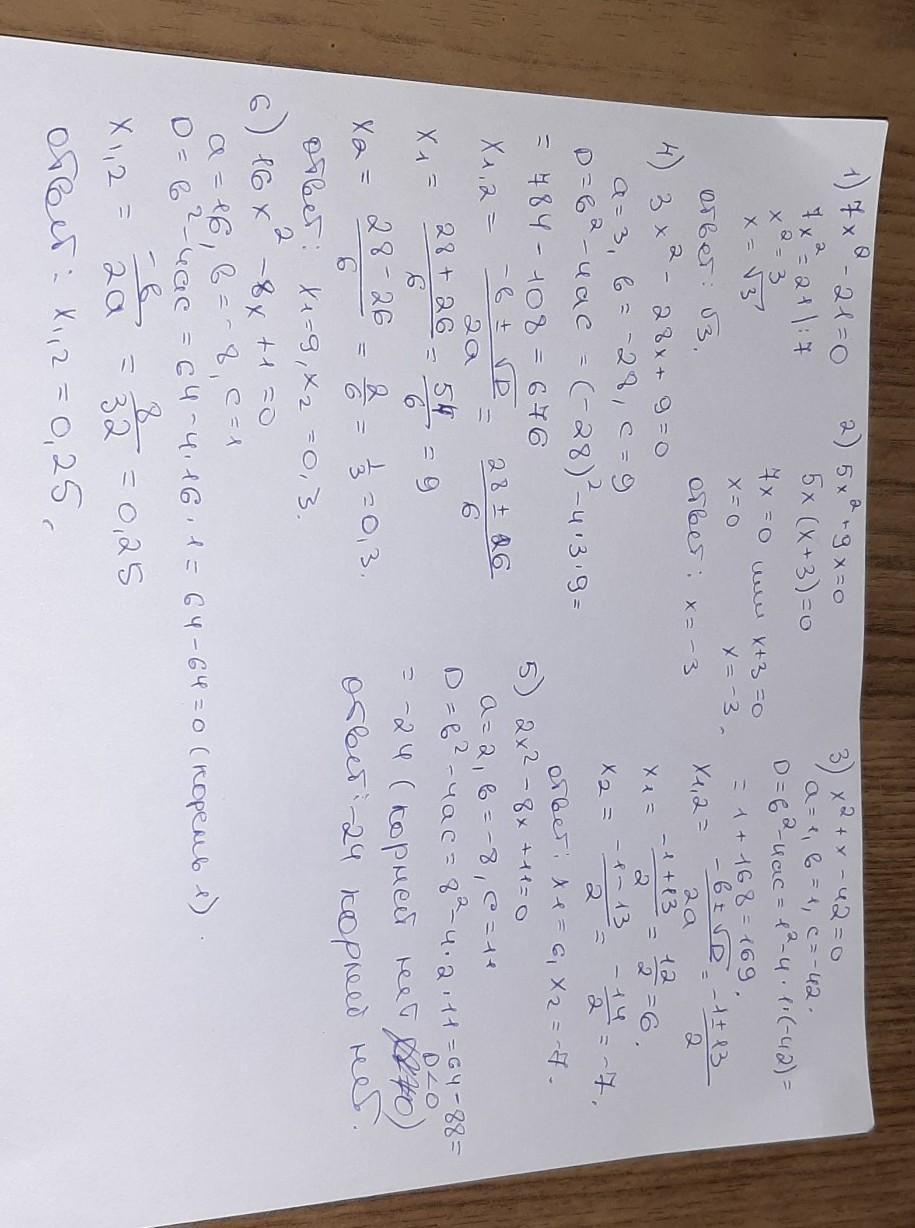 1) 7x² - 21 = 0
7x² = 21 | : 7
x² = 3
x = √3
ответ: √3.
2) 5x² + 9x = 0
5x (x+3) = 0
7x = 0 или x+3 = 0
x = 0 x = -3,
ответ: x = -3
3) x² + x - 42 = 0
a = 1, b = 1, c = -42.
D = b² - 4ac = 1² - 4 · 1 · (-42) =
= 1 + 168 = 169.
x1,2 = -b ± √D / 2a = -1 ± 13 / 2
x1 = -1 + 13 / 2 = 12 / 2 = 6.
x2 = -1 - 13 / 2 = -14 / 2 = -7.
ответ: x1 = 6, x2 = -7.
4) 3x² - 28x + 9 = 0
a = 3, b = -28, c = 9
D = b² - 4ac = (-28)² - 4 · 3 · 9 =
= 784 - 108 = 676
x1,2 = -b ± √D / 2a = 28 ± 26 / 6
x1 = 28 + 26 / 6 = 54 / 6 = 9
x2 = 28 - 26 / 6 = 2 / 6 = 1 / 3 = 0,3.
ответ: x1 = 9, x2 = 0,3.
5) 2x² - 8x + 11 = 0
a = 2, b = -8, c = 11
D = b² - 4ac = 8² - 4 · 2 · 11 = 64 - 88 =
= -24 (корней нет D < 0)
ответ: -24 корней нет.
6) 16x² - 8x + 1 = 0
a = 16, b = -8, c = 1
D = b² - 4ac = 64 - 4 · 16 · 1 = 64 - 64 = 0 (корень 1).
x1,2 = -b / 2a = 8 / 32 = 0,25
ответ: x1,2 = 0,25,